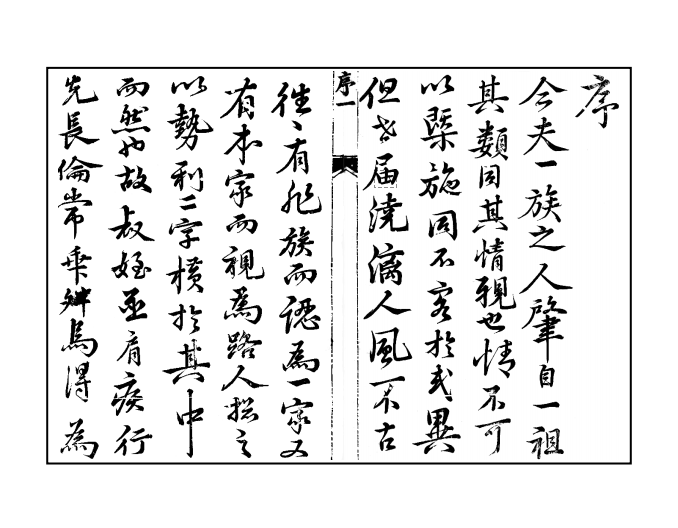 序
今夫一族之人肇自一祖
其類同其情親也情不可
以槩施同不容於或異
但世届澆漓人風不古
序一
徃〻有非族而認為一家又
有本家而視為路人揔之
以勢利二字橫於其中
而然也故叔姪並肩疾行
先長倫常乖舛焉得為